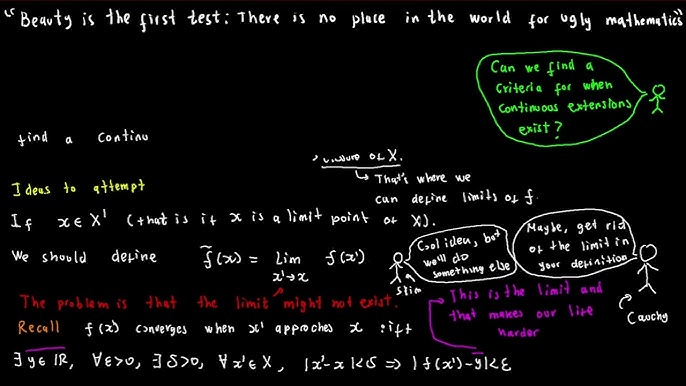 "Beauty is the first test: There is no place in the world for ugly mathematics"
Can we find a
criteria for when
continuous extensions
exist?
find a continu
closure of X.
↳ That's where we
can define limits of f.
Ideas to attempt
If x ∈ X' (that is if x is a limit point of X).
We should define f̃(x) = lim f(x')
x'→x
Cool idea, but
we'll do
something else
a
slim
Maybe, get rid
of the limit in
your definition
Cauchy
The problem is that the limit might not exist.
This is the limit and
that makes our life
harder
Recall f(x') converges when x' approches x iff
∃ y ∈ ℝ, ∀ε>0, ∃ δ>0, ∀ x' ∈ X, |x'-x|<δ ⇒ |f(x')-y|<ε